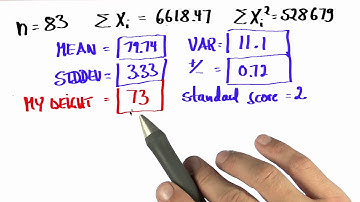 n = 83 ΣXi = 6618.47 ΣXi² = 528679
MEAN = 79.74 VAR = 11.1
STDDEV = 3.33 +/- = 0.72
MY HEIGHT = 73 standard score = 2